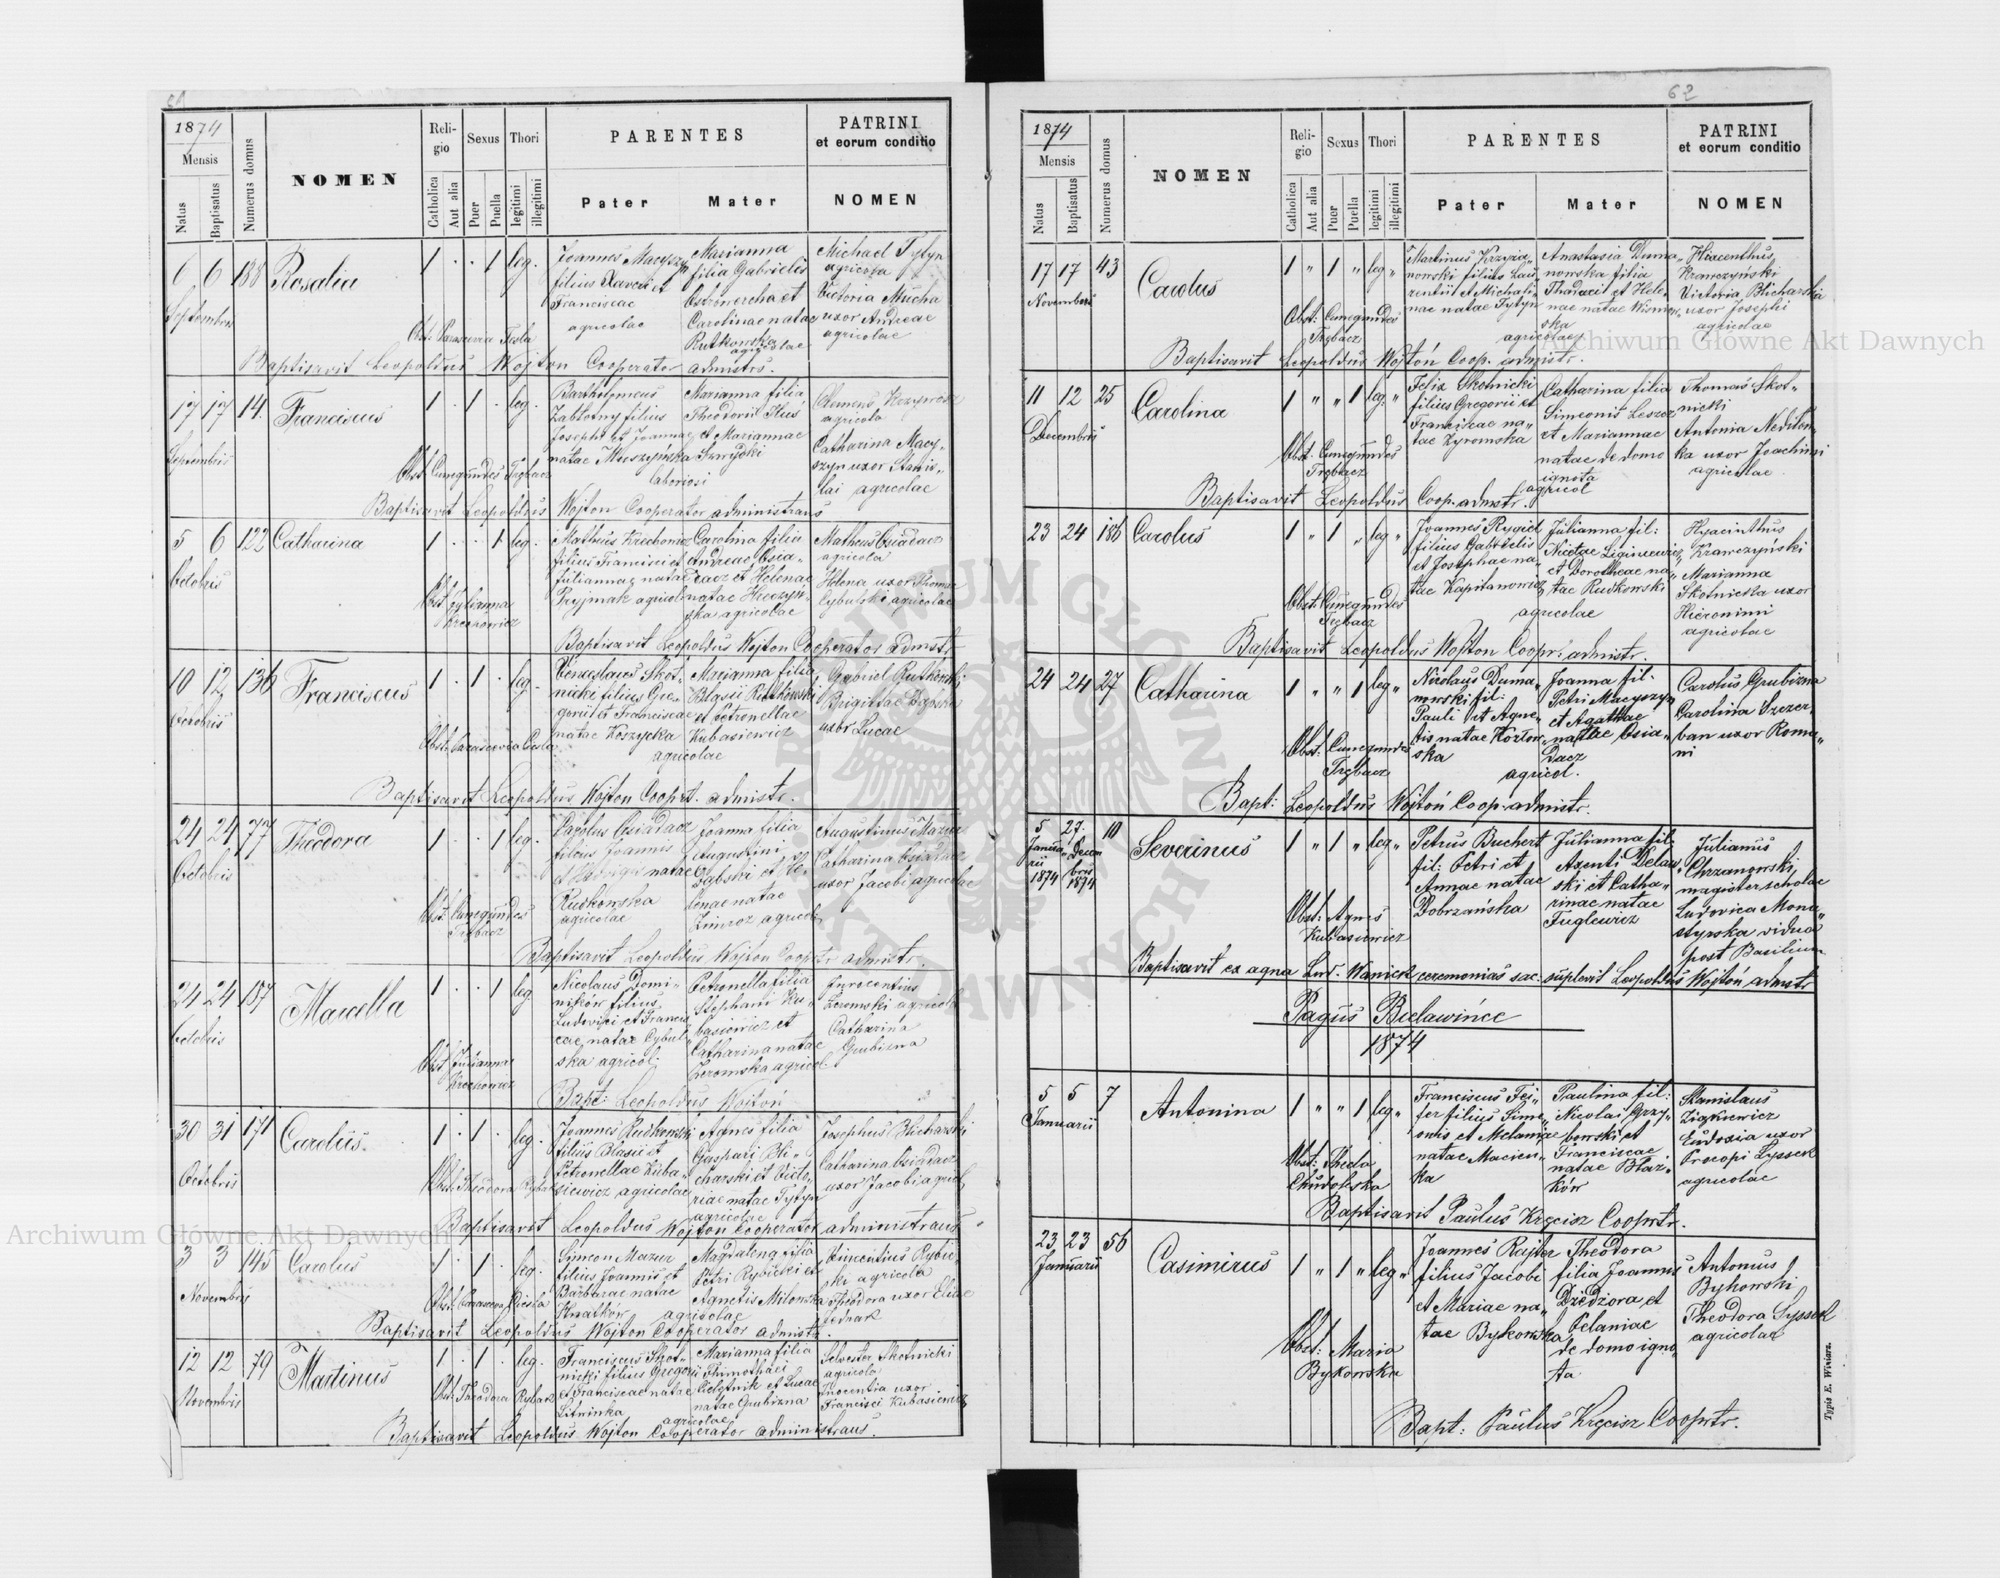 61
1874
Mensis
Natus
Baptisatus
Numerus domus
NOMEN
Reli-
gio
Catholica
Aut alia
Sexus
Puer
Puella
Thori
legitimi
illegitimi
PARENTES
Pater
Mater
PATRINI
et eorum conditio
NOMEN
6 6 188 Rosalia 1 . . 1 leg.
Septembris
Joannes Macyszyn
filius Xaverii et
Franciscae
agricolae
Marianna
filia Gabrielis
Ostrowercha et
Carolinae natae
Rutkowska
agricolae
Michael Tytyn
agricola
Victoria Mucha
uxor Andreae
agricolae
Obst. Parascevia Tesla
Baptisavit Leopoldus Wojton Cooperator admstrs.
17 17 14. Franciscus 1 . 1 . leg.
Septembris
Bartholomeus
Zabłotny filius
Josephi et Joannae
natae Muszyńska
Marianna filia
Theodorii Hus
et Mariannae
laboriosi
Clemens
agricola
Catharina Macy-
szyn uxor Stanis-
lai agricolae
Obst. Cunegundes Trębacz
Baptisavit Leopoldus Wojton Cooperator administrans
5 6 122 Catharina 1 . . 1 leg.
Octobris
Matheus Krechowicz
filius Francisci et
Juliannae natae
Pryjmak agricol
Carolina filia
Andreae Osia-
dacz et Helenae
natae Hreczyn-
ska agricolae
Matheus Osiadacz
agricola
Helena uxor Thomae
Cybulski agricolae
Obst. Julianna
Krechowicz
Baptisavit Leopoldus Wojton Cooperator admstr
10 12 136 Franciscus 1 . 1 . leg.
Octobris
Venceslaus Skot-
nicki filius Gre-
gorii et Franciscae
natae Koszycka
agricolae
Marianna filia
Blasii Rutkowski
et Petronellae
Kubasiewicz
Gabriel Rutkowski
Brigitta
uxor Lucae
Obst. Parascevia Tesla
Baptisavit Leopoldus Wojton Cooprt. admistr.
24 24 77 Theodora 1 . . 1 leg.
Octobris
Carolus Osiadacz
filius Joannis
et Hedvigis natae
Rudkowska
agricolae
Joanna filia
Augustini
Dąbski et He-
lenae natae
Zimroz agricol
Augustinus Mazur
Catharina Osiadacz
uxor Jacobi agricolae
Obst. Cunegundes
Trębacz
Baptisavit Leopoldus Wojton Cooprtr admistr.
24 24 187 Marcella 1 . . 1 leg
Octobris
Nicolaus Domi-
nikow filius
Ludovici et Francis
cae natae Cybul-
ska agricol.
Petronella filia
Stephani Ku-
basiewicz et
Catharina natae
Żeromska agricol.
Innocentius
Żeromski agricola
Catharina
Grubizna
Obst. Julianna
Krechowicz
Bapt: Leopoldus Wojton
30 31 171 Carolus. 1 . 1 . leg.
Octobris
Joannes Rudkowski
filius Blasii et
Petronellae Kuba-
siewicz agricolae
Agnes filia
Gaspari Bli-
charski et Victo-
riae natae Tytyn
agricolae
Josephus Blicharski
Catharina Osiadacz
uxor Jacobi agricol.
Obst. Theodora Rybak
Baptisavit Leopoldus Wojton Cooperator administrans
3 3 145 Carolus 1 . 1 . leg.
Novembris
Simeon Mazur
filius Joannis et
Barbarae natae
Hnatków
Magdalena filia
Petri Rybicki et
Agnetis Milowska
agricolae
Vincentius Rybic-
ski agricola
Theodora uxor Eliae
Jednak
Baptisavit Leopoldus Wojton Cooperator admistr.
12 12 79 Martinus 1 . 1 . leg.
Novembris
Franciscus Skot-
nicki filius Gregorii
et Franciscae natae
Marianna filia
Thimothaei
et Lucae
natae Grubizna
agricolae
Silvester Skotnicki
agricola
Inocentia uxor
Francisci Kubasiewicz
Obst. Theodora Rybak
Baptisavit Leopoldus Wojton Cooperator administrans.
62
1874
Mensis
Natus
Baptisatus
Numerus domus
NOMEN
Reli-
gio
Catholica
Aut alia
Sexus
Puer
Puella
Thori
legitimi
illegitimi
PARENTES
Pater
Mater
PATRINI
et eorum conditio
NOMEN
17 17 43 Carolus 1 " 1 " leg "
Novembris
Martinus Krzyża-
nowski filius Lau-
rentii et Michali-
nae natae Tytyn
Anastasia Duma-
nowska filia
Thadaei et Hele-
nae natae Wismer-
ska
agricolae
Hiacenthus
Krawczyński
Victoria Blicharska
uxor Josephi
agricolae
Obst: Cunegundes
Trębacz
Baptisavit Leopoldus Wojtoń Coop. admistr.
11 12 25 Carolina 1 " " 1 leg. "
Decembris
Felix Skotnicki
filius Gregorii et
Franciscae na-
tae Zyromska
Catharina filia
Simeonis Leszcz
et Mariannae
natae de domo
ignota
agricol
Thomas Skot-
nicki
Antonia
uxor Joachimi
agricolae
Obst: Cunegundes
Trębacz
Baptisavit Leopoldus Coop. admstr.
23 24 186 Carolus 1 " 1 " leg "
Joannes Rygiel
filius Gabrielis
et Josephae na-
tae Kapitanowicz
Julianna fil:
Nicetae
et Dorotheae na-
tae Rudkowski
agricolae
Hyacinthus
Krawczyński
Marianna
Skotnicka uxor
Hieronimi
agricolae
Obst: Cunegundes
Trębacz
Baptisavit Leopoldus Wojton Coopr: admistr.
24 24 27 Catharina 1 " " 1 leg "
Nicolaus Duma-
nowski fil:
Pauli et Agne-
tis natae Kozłow-
ska
Joanna fil:
Petri Macyszyn
et Agathae
natae Osia-
dacz
agricol.
Carolus Grubizna
Carolina Szczer-
ban uxor Roma-
ni
Obst: Cunegundes
Trębacz
Bapt: Leopoldus Wojtoń Coop. admistr.
5 27. 10 Severinus 1 " 1 " leg "
Janua-
rii
1874
Decem
bris
1874
Petrus Buchert
fil: Petri et
Annae natae
Dobrzańska
Julianna fil:
Axenti Delaw-
ski et Catha-
rinae natae
Fuglewicz
Julianus
Chrzanowski
magister scholae
Ludovica Mona-
styrska vidua
post Basilium
Obst: Agnes
Kubasiewicz
Baptisavit ex aqua Lud. Wanick ceremonias sac: suplevit Leopoldus Wojtoń admstr
Pagus Bieławińce
1874
5 5 7 Antonina 1 " " 1 leg "
Januarii
Franciscus Fei-
fer filius Sime-
onis et Melaniae
natae Macien-
ka
Paulina fil:
Nicolai Grzy-
bowski et
Franciscae
natae Błaż-
ków
Stanislaus
Ziąkiewicz
Eudoxia uxor
Procopi Lyssek
agricolae
Obst: Thecla
Chudobska
Baptisavit Paulus Kręcisz Cooprtr.
23 23 56 Casimirus 1 " 1 " leg "
Januarii
Joannes Rajter
filius Jacobi
et Mariae na-
tae Bykowska
Theodora
filia Joannis
Dziedziora et
Pelaniae
de domo igno-
ta
Antonius
Bykowski
Theodora Lyssek
agricolae
Obst: Maria
Bykowska
Bapt: Paulus Kręcisz Cooprtr.
Typis E. Winiarz.
Archiwum Główne Akt Dawnych
Archiwum Główne Akt Dawnych
ARCHIWUM GŁÓWNE AKT DAWNYCH